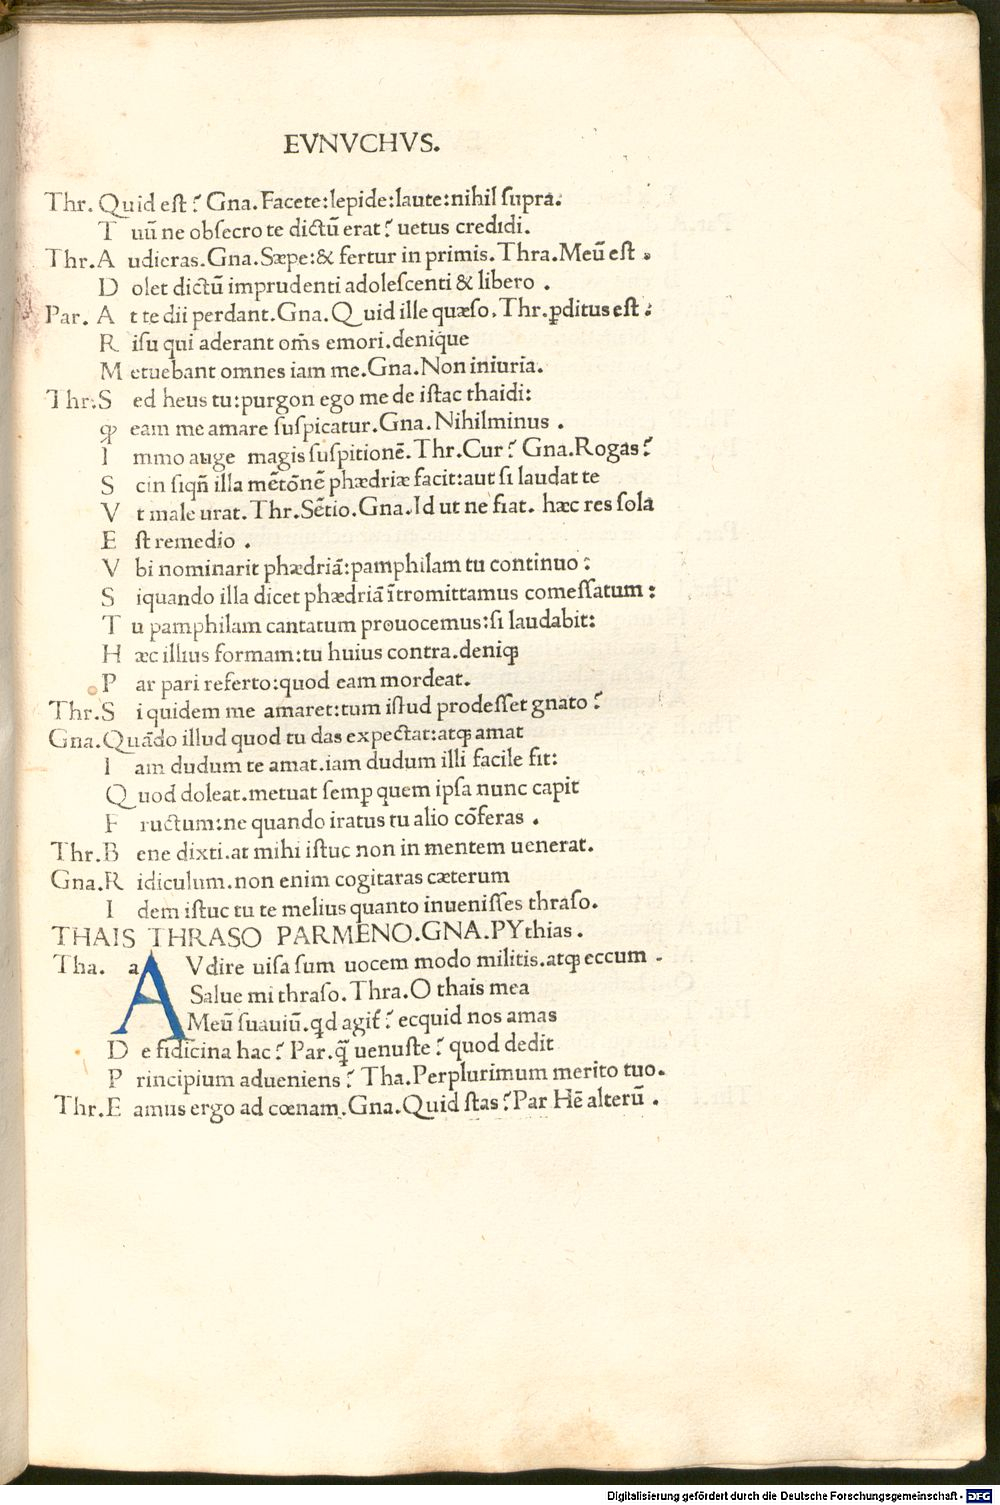 EVNVCHVS.
Thr. Quid eſt ? Gna. Facete:lepide:laute:nihil ſupra.
T uū ne obſecro te dictū erat? uetus credidi.
Thr.A udieras.Gna.Sæpe:& fertur in primis.Thra.Meū eſt .
D olet dictū imprudenti adoleſcenti & libero .
Par. A t te dii perdant.Gna.Quid ille quæſo.Thr.ꝑditus eſt :
R iſu qui aderant om̄s emori.denique
M etuebant omnes iam me.Gna.Non iniuria.
Thr.S ed heus tu:purgon ego me de iſtac thaidi:
ꝙ eam me amare ſuſpicatur.Gna.Nihilminus .
I mmo auge magis ſuſpitionē.Thr.Cur? Gna.Rogas?
S cin ſiqñ illa mētōnē phædriæ facit:aut ſi laudat te
V t male urat.Thr.Sētio.Gna.Id ut ne fiat. hæc res ſola
E ſt remedio .
V bi nominarit phædriā:pamphilam tu continuo :
S iquando illa dicet phædriā ītromittamus comeſſatum :
T u pamphilam cantatum prouocemus:ſi laudabit:
H æc illius formam:tu huius contra.deniqꝫ
P ar pari referto:quod eam mordeat.
Thr.S i quidem me amaret:tum iſtud prodeſſet gnato ?
Gna.Quādo illud quod tu das expectat:atqꝫ amat
I am dudum te amat.iam dudum illi facile fit:
Quod doleat.metuat ſemꝑ quem ipſa nunc capit
F ructum:ne quando iratus tu alio cōferas .
Thr.B ene dixti.at mihi iſtuc non in mentem uenerat.
Gna.R idiculum.non enim cogitaras cæterum
I dem iſtuc tu te melius quanto inueniſſes thraſo.
THAIS THRASO PARMENO.GNA.PYthias .
Tha. a AVdire uiſa ſum uocem modo militis.atqꝫ eccum .
Salue mi thraſo.Thra.O thais mea
Meū ſuauiū.qd agit̄? ecquid nos amas
D e fidicina hac? Par.q̄ uenuſte? quod dedit
P rincipium adueniens? Tha.Perplurimum merito tuo.
Thr.E amus ergo ad cœnam.Gna.Quid ſtas?Par Hē alterū .
Digitalisierung gefördert durch die Deutsche Forschungsgemeinschaft - DFG